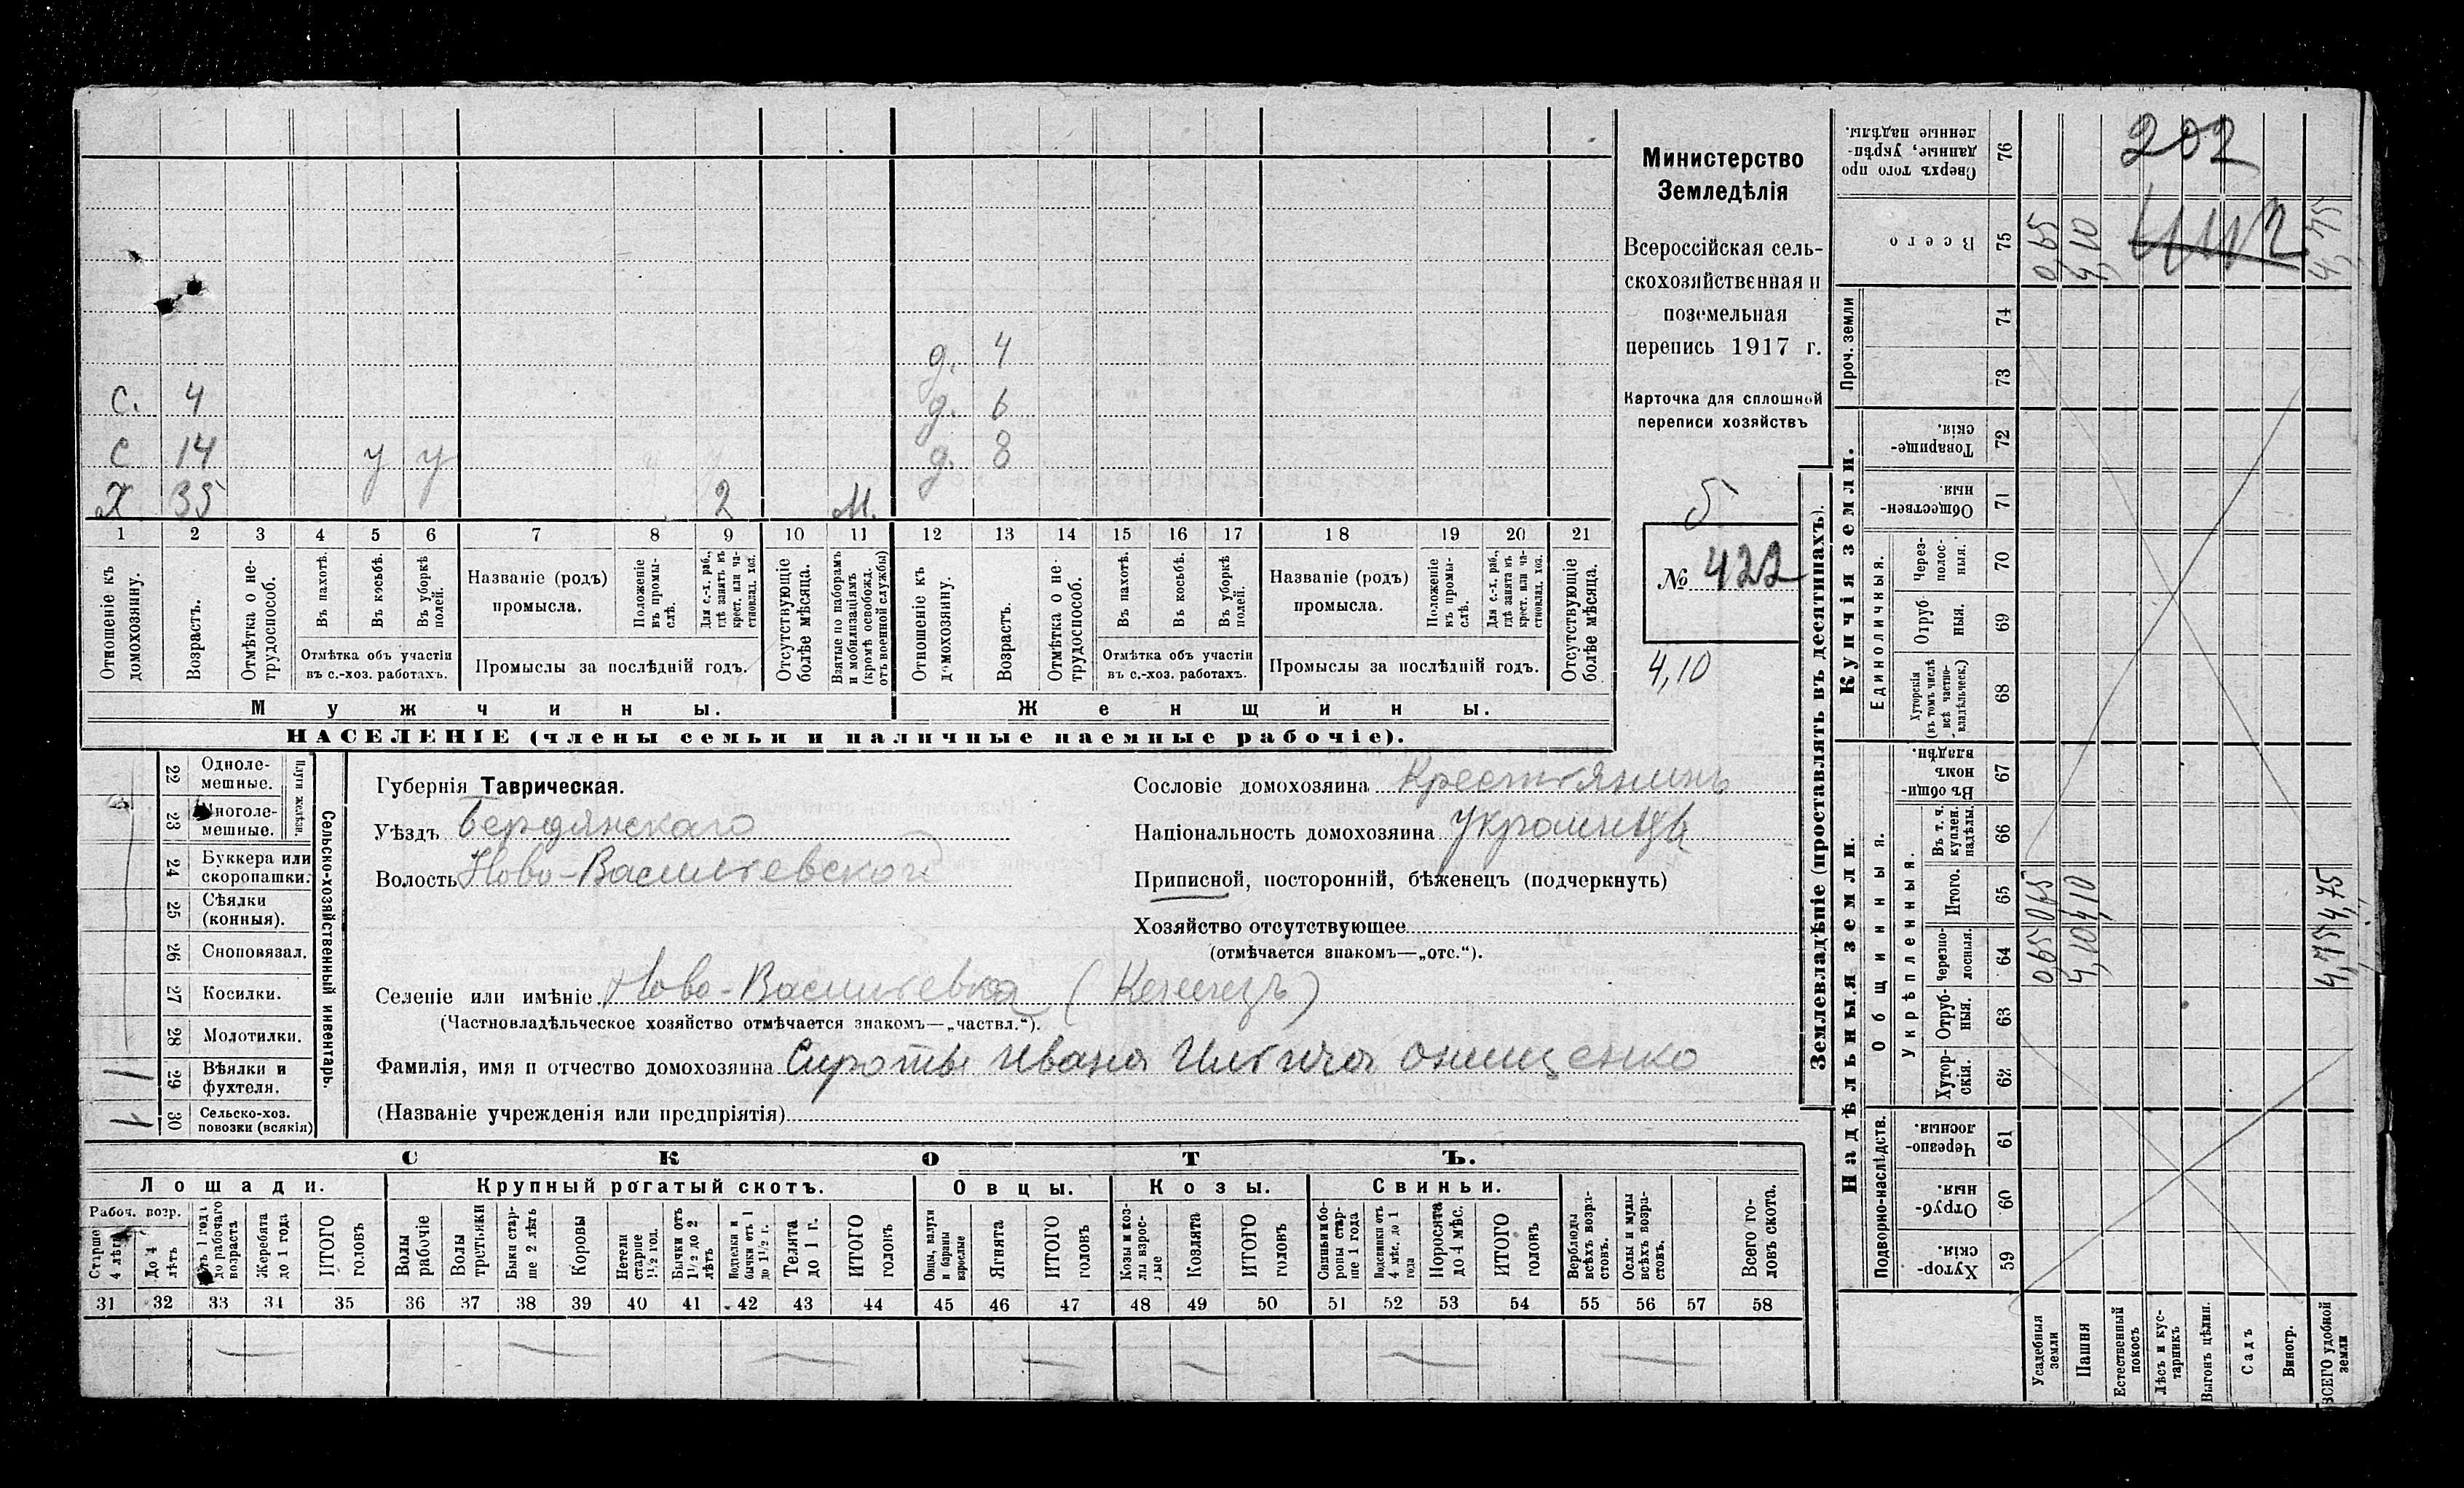 Министерство
Земледѣлія
Всероссійская сель-
скохозяйственная и
поземельная
перепись 1917 г.
Карточка для сплошной
переписи хозяйствъ
5
№ 422
4,10
д. 4
С. 4 д. 6
С 14 у у д. 8
Х 35 2 М.
1 2 3 4 5 6 7 8 9 10 11 12 13 14 15 16 17 18 19 20 21
Отношеніе къ домохозяину.
Возрастъ.
Отмѣтка о не-трудоспособ.
Въ пахотѣ.
Въ косьбѣ.
Въ уборкѣ полей.
Отмѣтка объ участіи
въ с.-хоз. работахъ.
Названіе (родъ)
промысла.
Положеніе въ промы-слѣ.
Для с.-х. раб., гдѣ занятъ въ крест. или ча-стновлад. хоз.
Промыслы за послѣдній годъ.
Отсутствующіе болѣе мѣсяца.
Взятые по наборамъ и мобилизаціямъ (кромѣ освобожд. отъ военной службы)
Отношеніе къ домохозяину.
Возрастъ.
Отмѣтка о не-трудоспособ.
Въ пахотѣ.
Въ косьбѣ.
Въ уборкѣ полей.
Отмѣтка объ участіи
въ с.-хоз. работахъ.
Названіе (родъ)
промысла.
Положеніе въ промы-слѣ.
Для с.-х. раб., гдѣ занята въ крест. или ча-стновлад. хоз.
Промыслы за послѣдній годъ.
Отсутствующіе болѣе мѣсяца.
Мужчины. Женщины.
НАСЕЛЕНІЕ (члены семьи и наличные наемные рабочіе).
Сельско-хозяйственный инвентарь.
Плуги желѣзн.
22 Одноле-мешные.
23 Многоле-мешные.
24 Буккера или скоропашки.
25 Сѣялки (конныя).
26 Сноповязал.
27 Косилки.
28 Молотилки.
29 Вѣялки и фухтеля. 1
30 Сельско-хоз. повозки (всякія) 1
Губернія Таврическая.
Уѣздъ Бердянскаго
Волость Ново-Васильевской
Сословіе домохозяина Крестьянинъ
Національность домохозяина Украинецъ
Приписной, посторонній, бѣженецъ (подчеркнуть)
Хозяйство отсутствующее
(отмѣчается знакомъ—„отс.“).
Селеніе или имѣніе Ново-Васильевка
(Частновладѣльческое хозяйство отмѣчается знакомъ—„частвл.“).
Фамилія, имя и отчество домохозяина Сироты Ивана Ильича Онищенко
(Названіе учрежденія или предпріятія)
СКОТЪ.
Лошади. Крупный рогатый скотъ. Овцы. Козы. Свиньи.
Рабоч. возр.
Старше 4 лѣтъ
До 4 лѣтъ
Отъ 1 года до рабочаго возраста
Жеребята до 1 года
ИТОГО головъ
Волы рабочіе
Волы третьяки
Быки стар-ше 2 лѣтъ
Коровы
Нетели старше 1½ год.
Бычки отъ 1½ до 2 лѣтъ
Подтелки и бычки отъ 1 до 1½ г.
Телята до 1 г.
ИТОГО головъ
Овцы, валухи и бараны взрослые
Ягнята
ИТОГО головъ
Козы и коз-лы взрос-лые
Козлята
ИТОГО головъ
Свиньи и бо-ровы стар-ше 1 года
Подсвинки отъ 4 мѣс. до 1 года
Поросята до 4 мѣс.
ИТОГО головъ
Верблюды всѣхъ возра-стовъ.
Ослы и мулы всѣхъ возра-стовъ.
Всего го-ловъ скота.
31 32 33 34 35 36 37 38 39 40 41 42 43 44 45 46 47 48 49 50 51 52 53 54 55 56 57 58
Землевладѣніе (проставлять въ десятинахъ).
Надѣльныя земли. Купчія земли. Проч. земли
Подворно-наслѣдств.
Общинныя.
Укрѣпленныя.
Единоличныя.
59 Хутор-скія.
60 Отруб-ныя.
61 Черезпо-лосныя.
62 Хутор-скія.
63 Отруб-ныя.
64 Черезпо-лосныя. 0,65 4,10 4,75
65 Итого. 0,65 4,10 4,75
66 Въ т. ч. куплен. надѣлы.
67 Въ общи-номъ владѣн.
68 Хуторскія (въ томъ числѣ всѣ частно-владѣльческ.)
69 Отруб-ныя.
70 Через-полос-ныя.
71 Обществен-ныя.
72 Товарище-скія.
73
74
75 Всего 0,65 4,10 4,75
76 Сверхъ того про-данные, укрѣп-ленные надѣлы.
202
Усадебныя земли
Пашня
Естественный покосъ
Лѣсъ и кус-тарникъ
Выгонъ цѣлин.
Садъ
Виногр.
ВСЕГО удобной земли